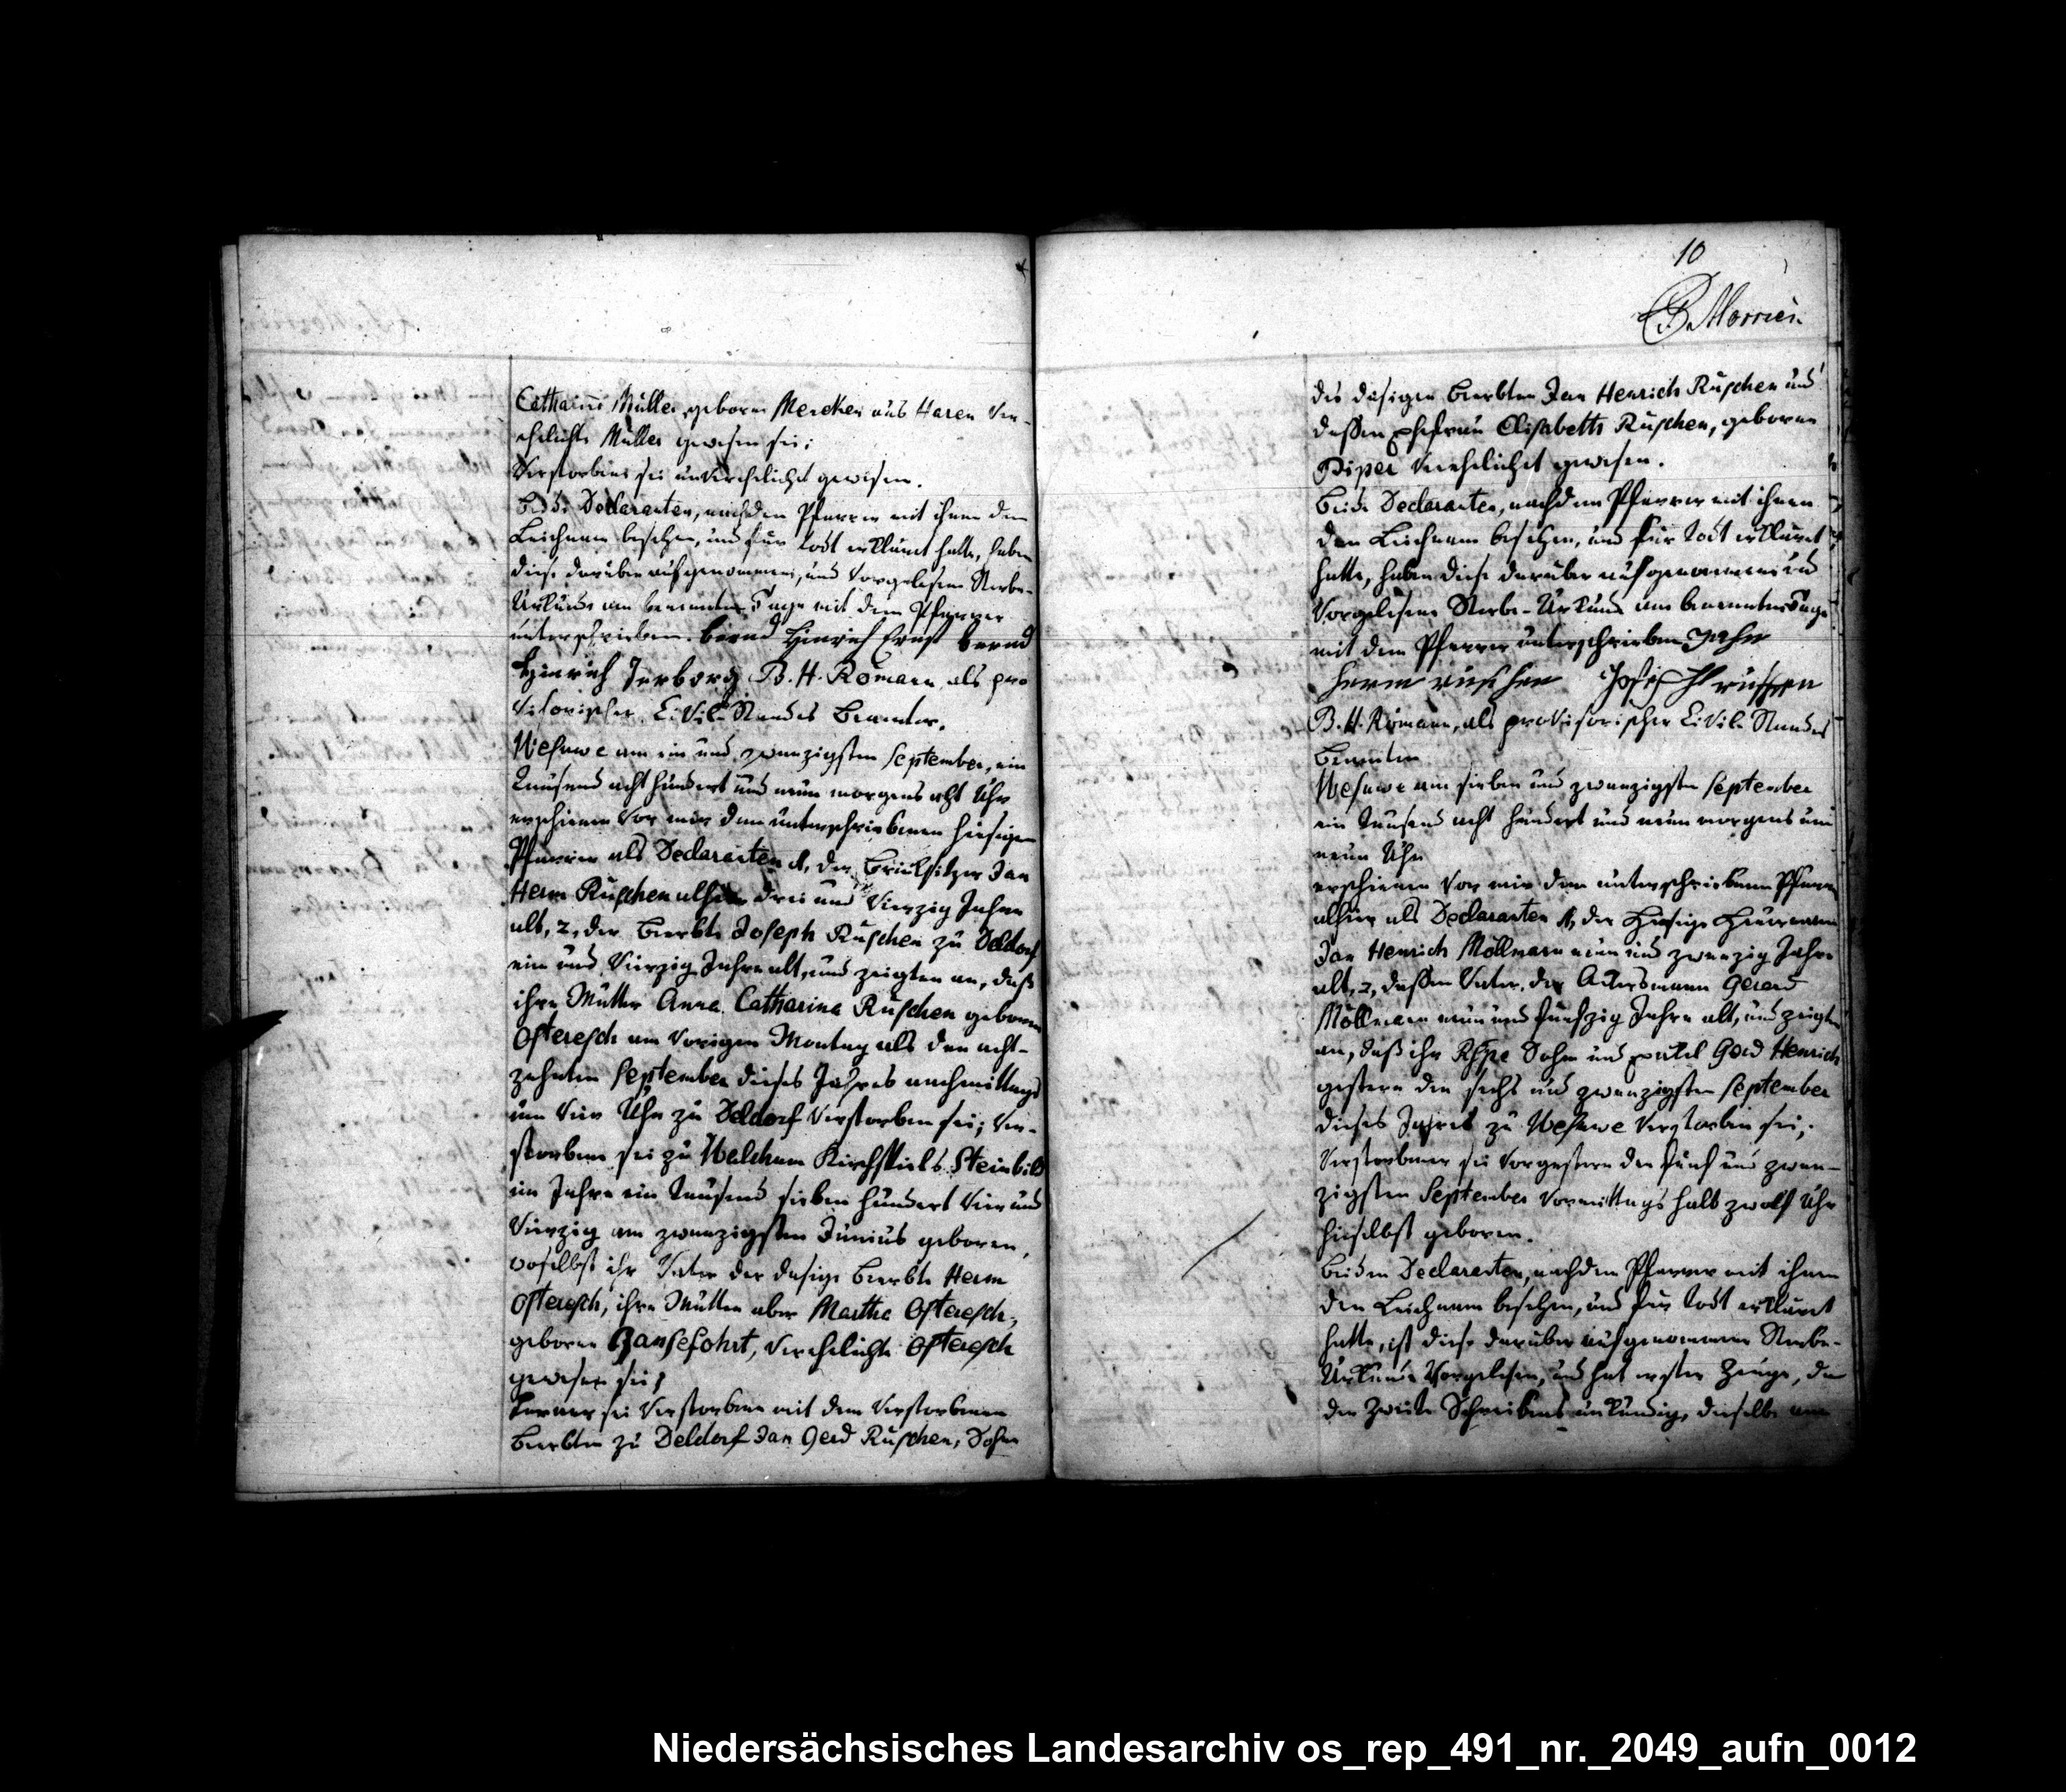 Catharine Müller geborne Mercken aus Haren ver-
ehelichte Müller gewesen sei;
Verstorbene sei unverehelicht gewesen.
Beide Declaranten, nachdem Pfarrer mit ihnen den
Leichnam besehen, und für todt erklärt hatte, haben
diese darüber aufgenommene, und vorgelesene Sterbe-
Urkunde am benannten Tage mit dem Pfarrer
unterschrieben. Bernd Hinrich Ernst Bernd
Hinrich B. H. Römann, als pro
visorischer Civil-Standes Beamter.
Wesuwe am ein und zwanzigsten September, ein
Tausend acht hundert und neun morgens acht Uhr
erschienen vor mir dem unterschriebenen hiesigen
Pfarrer als Declaranten 1, der Brinksitzer Jan
Herm Ruschen alhier drei und vierzig Jahre
alt, 2, der Beerbte Joseph Ruschen zu Deldorf
ein und vierzig Jahre alt, und zeigten an, daß
ihre Mutter Anna Catharina Ruschen geborne
Osteresch am vorigen Montag als den acht-
zehnten September dieses Jahres nachmittags
um vier Uhr zu Deldorf verstorben sei; Ver-
storbene sei zu Walchum Kirchspiels Steinbild
im Jahre ein Tausend sieben hundert vier und
vierzig am zwanzigsten Junius geboren,
woselbst ihr Vater der dasige Beerbte Herm
Osteresch, ihre Mutter aber Martha Osteresch,
geborne Gansefohrt, verehelichte Osteresch
gewesen sei;
Ferner sei Verstorbene mit dem verstorbenen
Beerbten zu Deldorf Jan Gerd Ruschen, Sohn
10
Morrien
des dasigen Beerbten Jan Henrich Ruschen und
dessen Ehefrau Elisabeth Ruschen, geborne
Piper verehelichet gewesen.
Beide Declaranten, nachdem Pfarrer mit ihnen
den Leichnam besehen, und für todt erklärt
hatte, haben diese darüber aufgenommene und
vorgelesene Sterbe-Urkunde am benannten Tage
mit dem Pfarrer unterschrieben Jahn
Herm ruschen Joseph ruschen
B. H. Römann, als provisorischer Civil-Standes
Beamter
Wesuwe am sieben und zwanzigsten September
ein Tausend acht hundert und neun morgens um
neun Uhr
erschienen vor mir dem unterschriebenen Pfarrer
alhier als Declaranten 1, der hiesige Heuermann
Jan Henrich Möllmann neun und zwanzig Jahre
alt, 2, dessen Vater, der Ackersmann Gerard
Möllmann neun und funfzig Jahre alt, und zeigten
an, daß ihr Sohn und Gerd Henrich
gestern den sechs und zwanzigsten September
dieses Jahres zu Wesuwe verstorben sei;
Verstorbener sei vorgestern den fünf und zwan-
zigsten September vormittags halb zwölf Uhr
hieselbst geboren.
Beiden Declaranten, nachdem Pfarrer mit ihnen
den Leichnam besehen, und für todt erklärt
hatte, ist diese darüber aufgenommene Sterbe-
Urkunde vorgelesen, und hat erster Zeuge, da
der zweite Schreibens unkundig, dieselbe am
Niedersächsisches Landesarchiv os_rep_491_nr._2049_aufn_0012